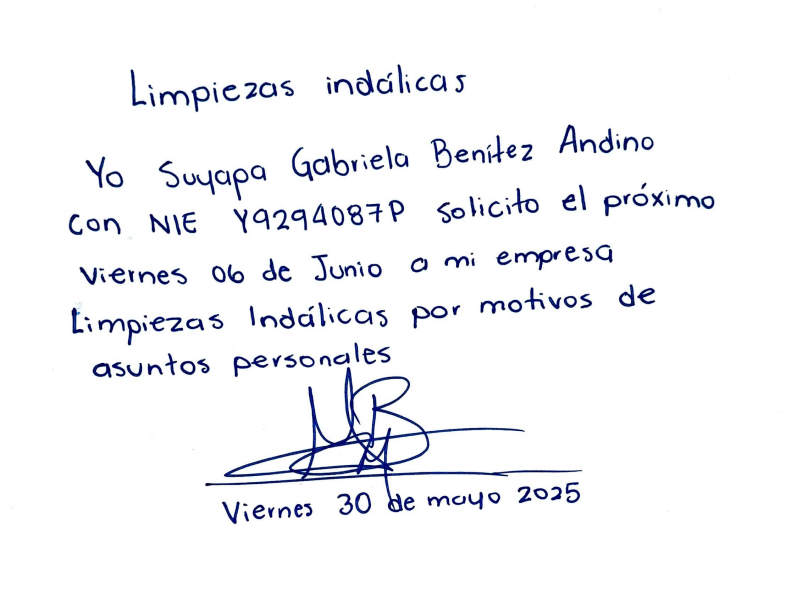 Limpiezas indálicas
Yo Suyapa Gabriela Benítez Andino
con NIE Y9294087P solicito el próximo
viernes 06 de Junio a mi empresa
Limpiezas Indálicas por motivos de
asuntos personales
Viernes 30 de mayo 2025